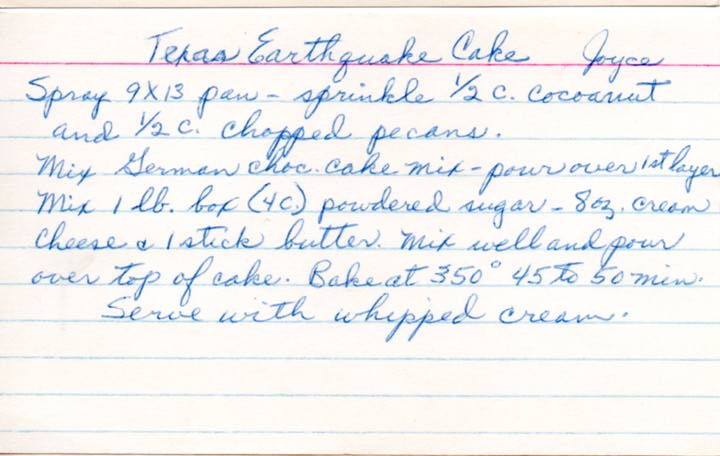 Texas Earthquake Cake Joyce
Spray 9X13 pan - sprinkle 1/2 c. cocoanut
and 1/2 c. chopped pecans.
Mix German choc. cake mix - pour over 1st layer
Mix 1 lb. box (4c) powdered sugar - 8 oz. cream
cheese & 1 stick butter. Mix well and pour
over top of cake. Bake at 350° 45 to 50 min.
Serve with whipped cream.